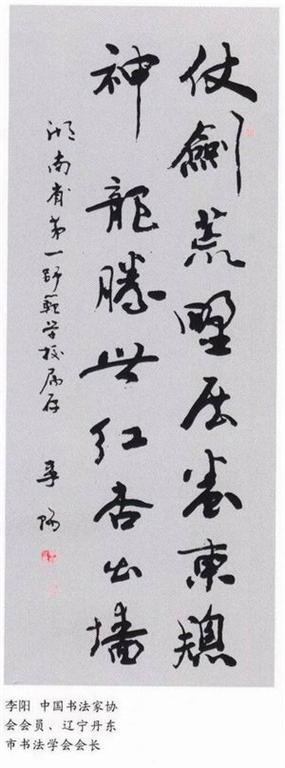 仗劍荒墅東
神龍騰世红杏出墻
湖南省第一師範学校属存
李陽
李阳 中国书法家协
会会员、辽宁丹东
市书法学会会长